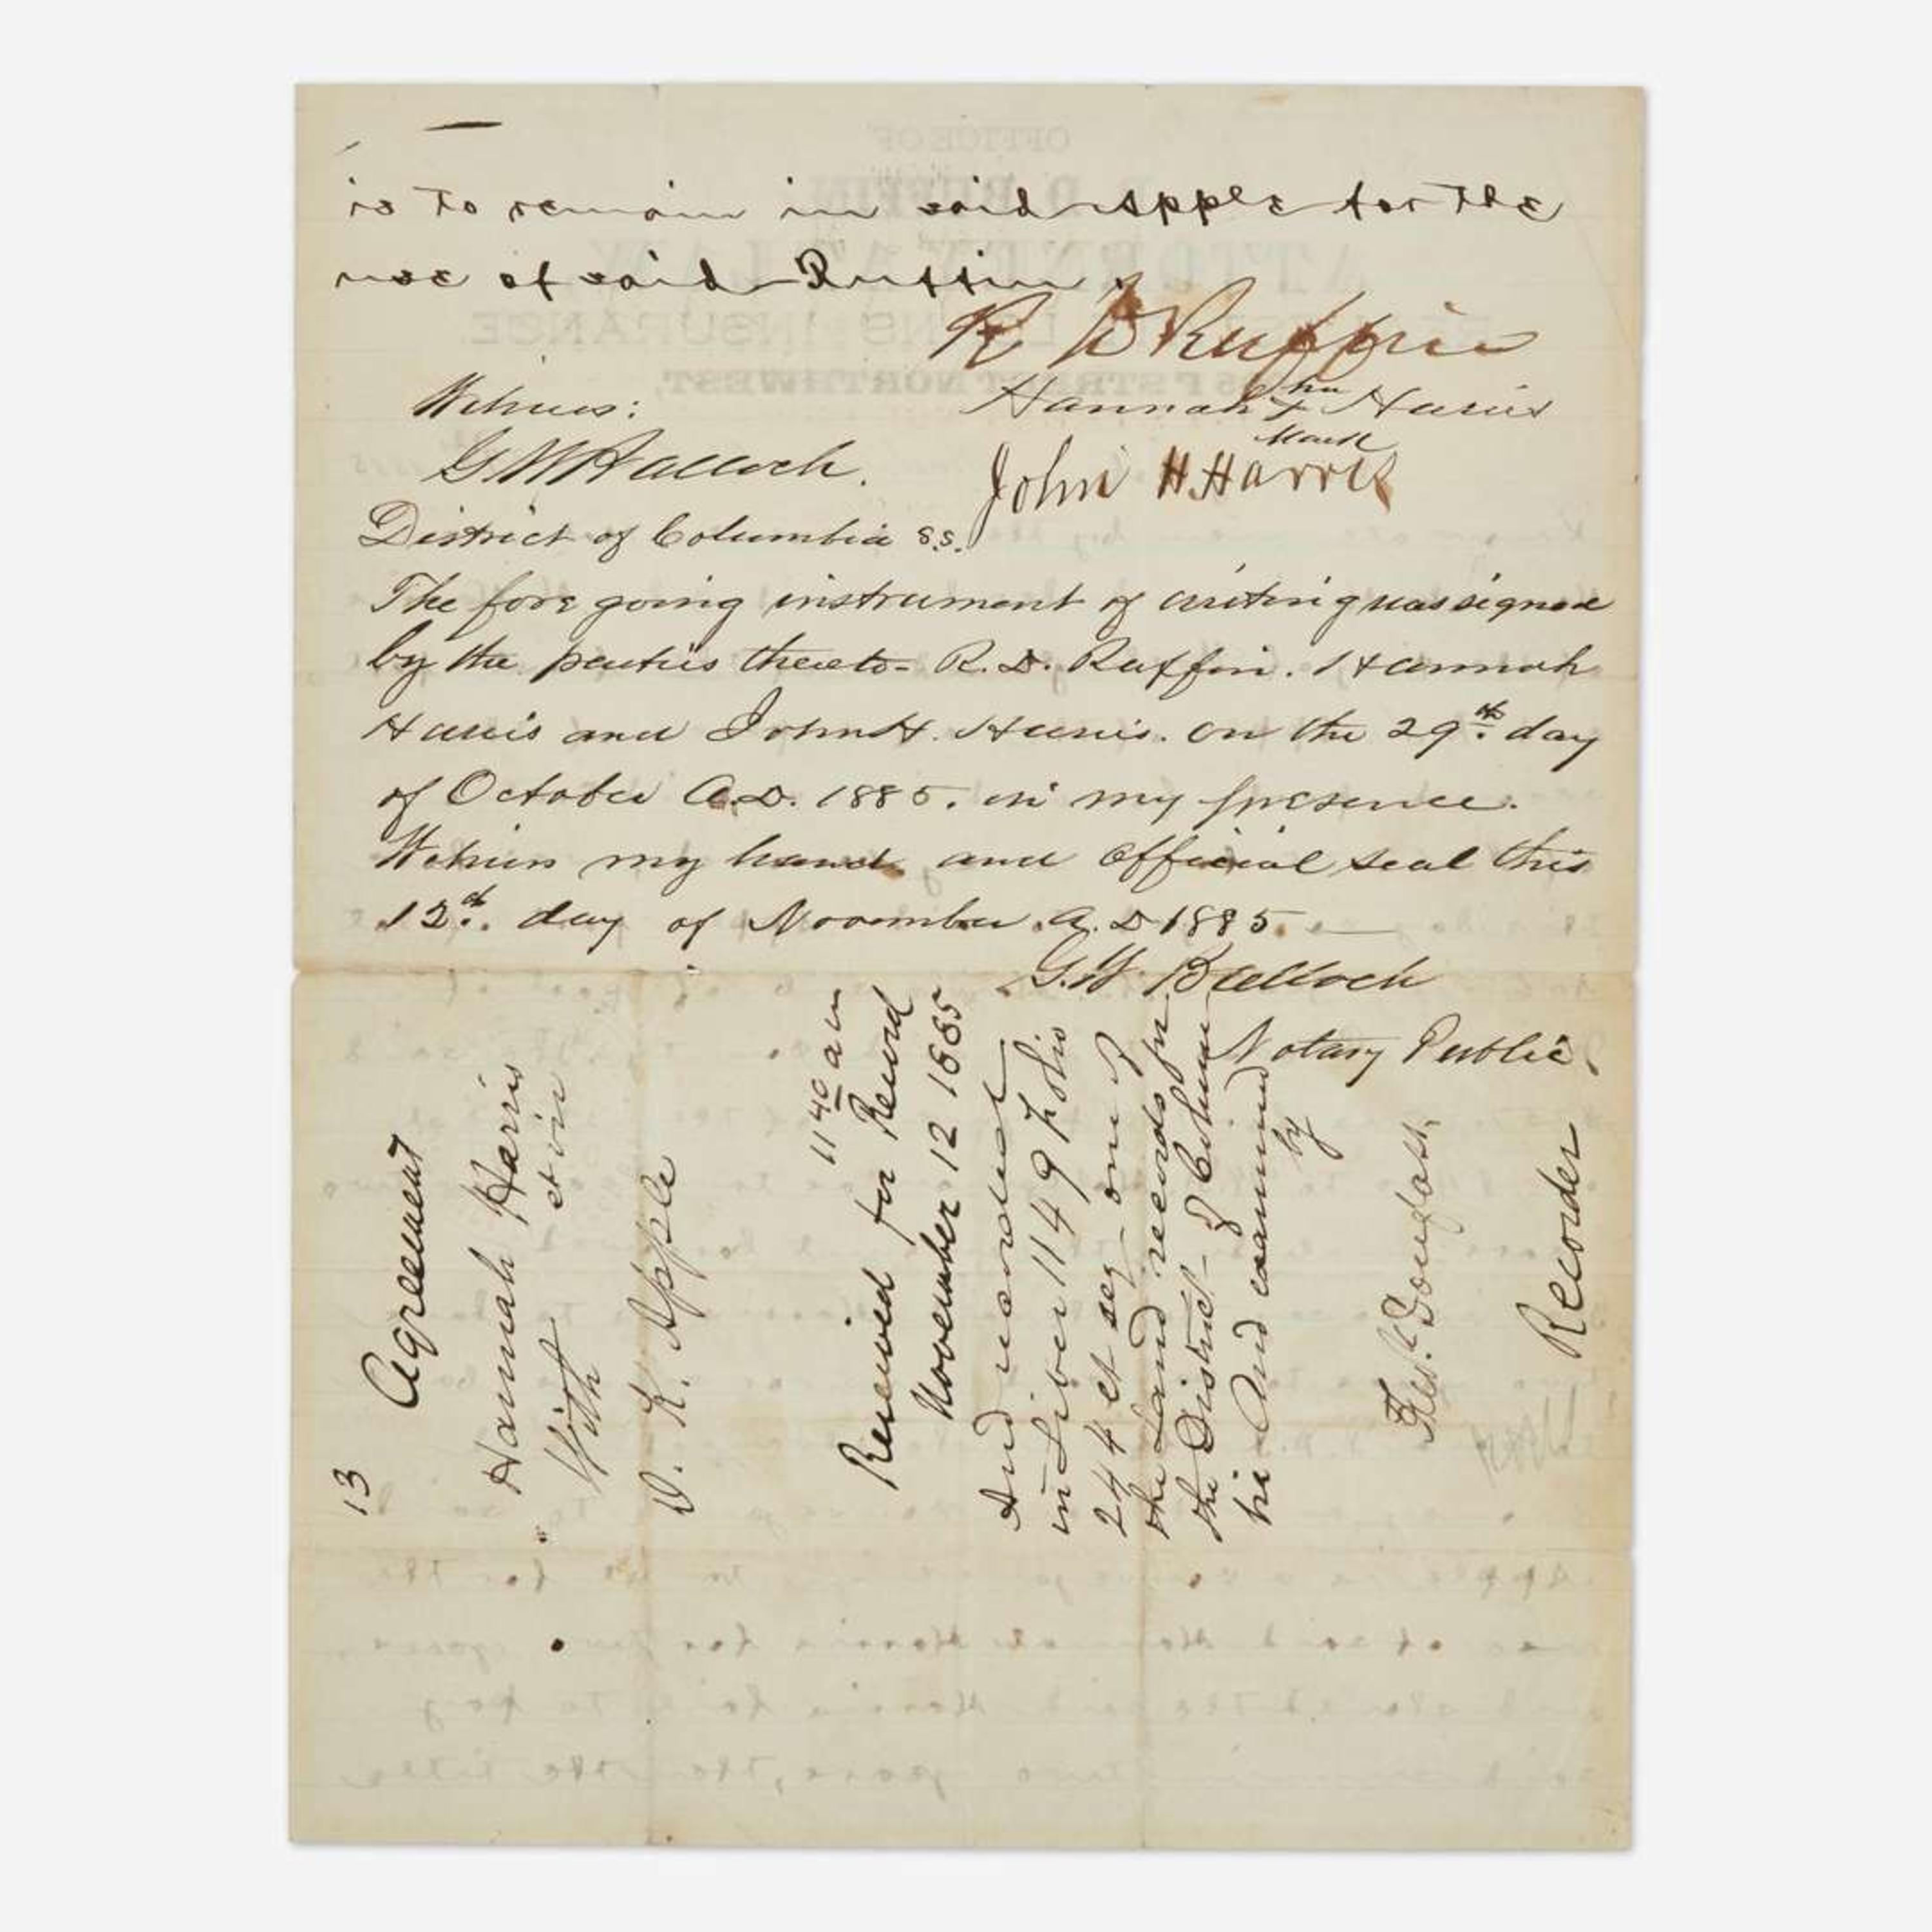 is to remain in said Apple for the
use of said Ruffin.
R D Ruffin
Witness:
Hannah her x mark Harris
G W Balloch.
John H. Harris
District of Columbia s.s.
The fore going instrument of writing was signed
by the parties thereto - R. D. Ruffin. Hannah
Harris and John H. Harris. on the 29th day
of October A.D. 1885. in my presence.
Witness my hand and official seal this
12th. day of November. A. D 1885.
G. W. Balloch
Notary Public.
13
Agreement
Hannah Harris
et vir
With
D. K. Apple
11 40 am
Received for Record
November 12 1885
And recorded
in Liber 1149 Folio
244 et seq one of
the Land records for
the District of Columbia
and examined by
Fredk. Douglass,
Recorder